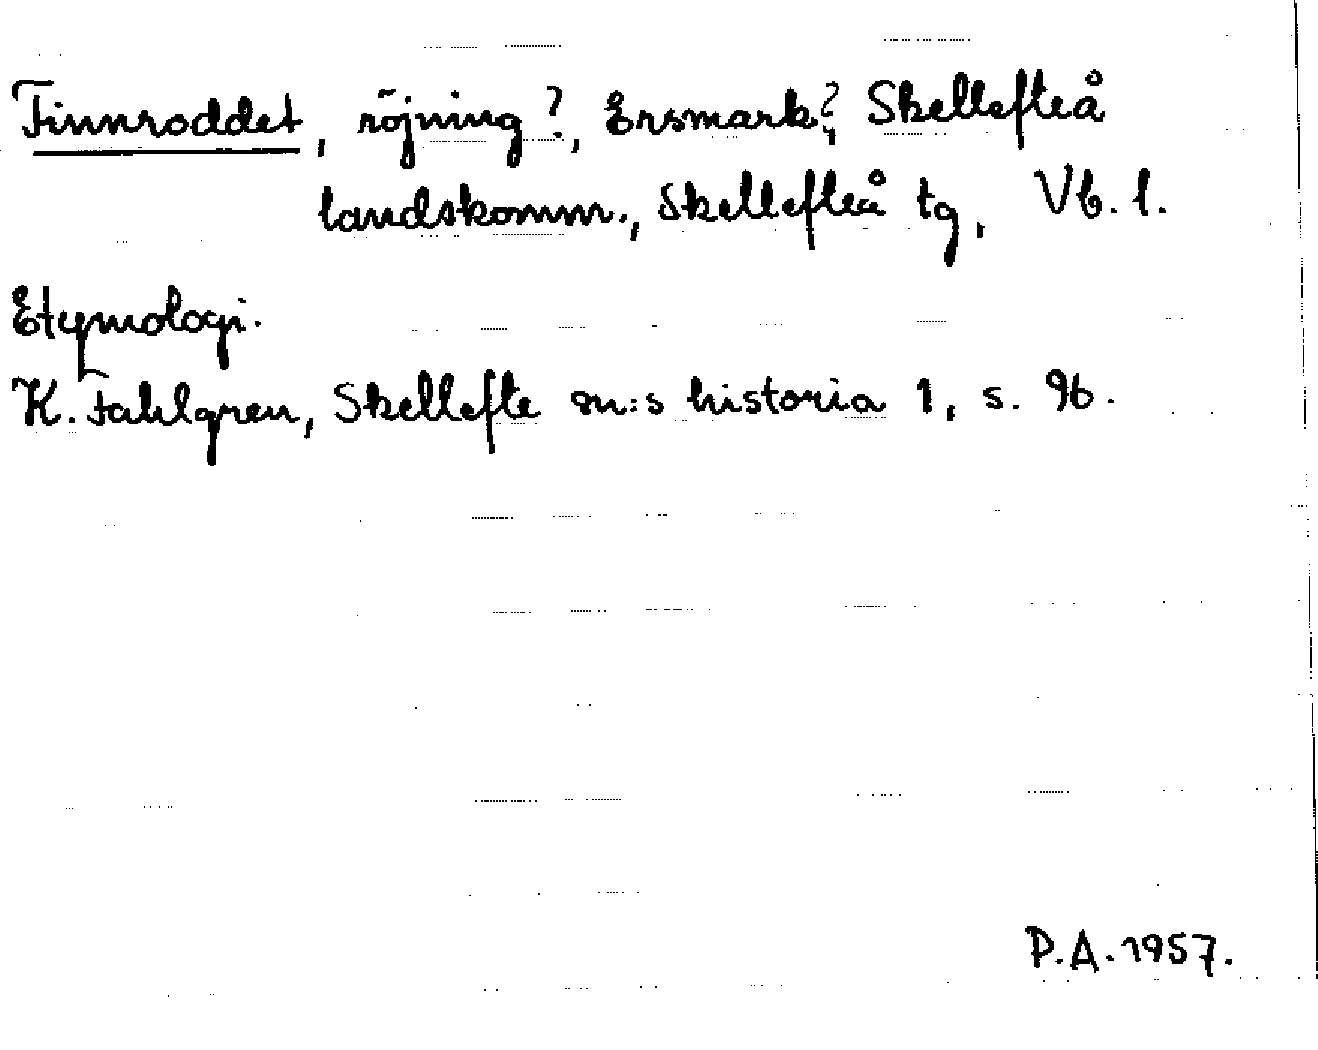 Finnroddet, röjning?, Ersmark?, Skellefteå
landskomm., Skellefteå tg, Vb. l.
Etymologi.
K. Fahlgren, Skellefte sn:s historia 1, s. 96.
P.A. 1957.